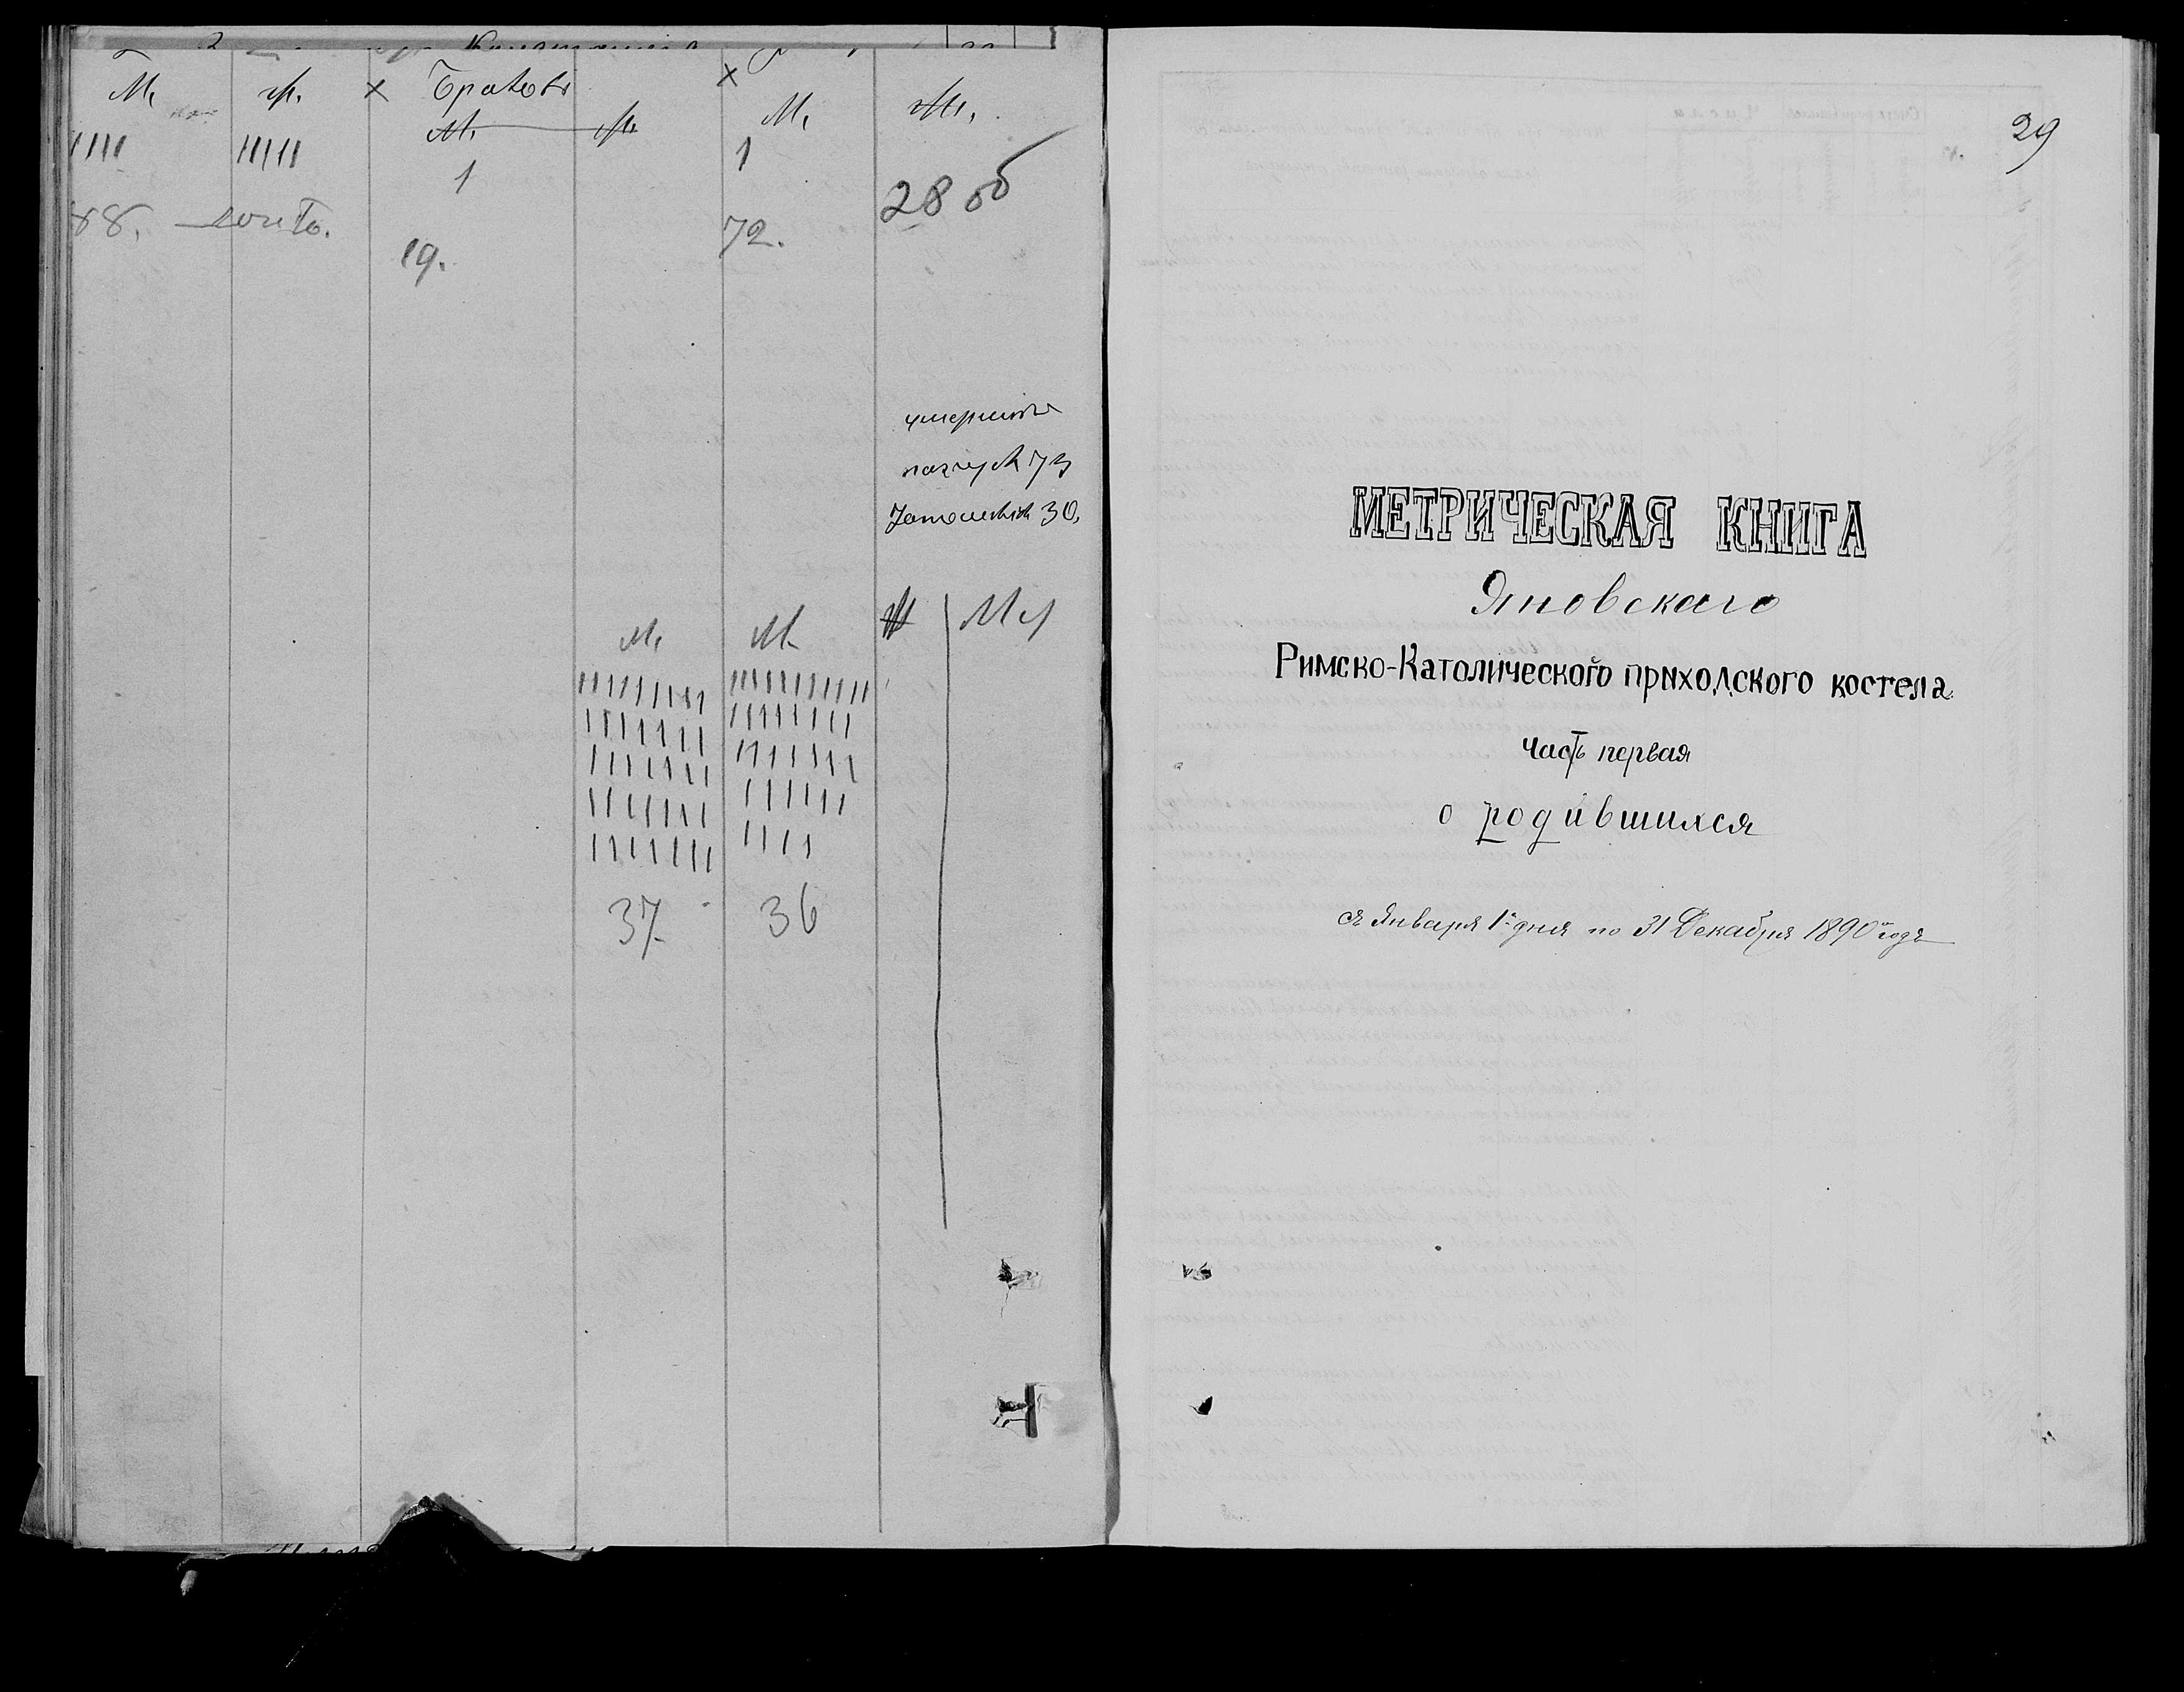 М. ж. × Браковъ × М. Ж.
М. ж.
IIII IIIII 1 1
88. 19. 72. 28 об
умершихъ
73
30.
М. М. Ж М
IIIIIIIII IIIIIIIIII
IIIIIII IIIIIIII
IIIIIII IIIIIII
IIIIIII IIIIII
IIIIIII IIII
37. 36
29
МЕТРИЧЕСКАЯ КНИГА
Яновскаго
Римско-Католического приходского костела
часть первая
о родившихся
съ Января 1го дня по 31 Декабря 1890го года